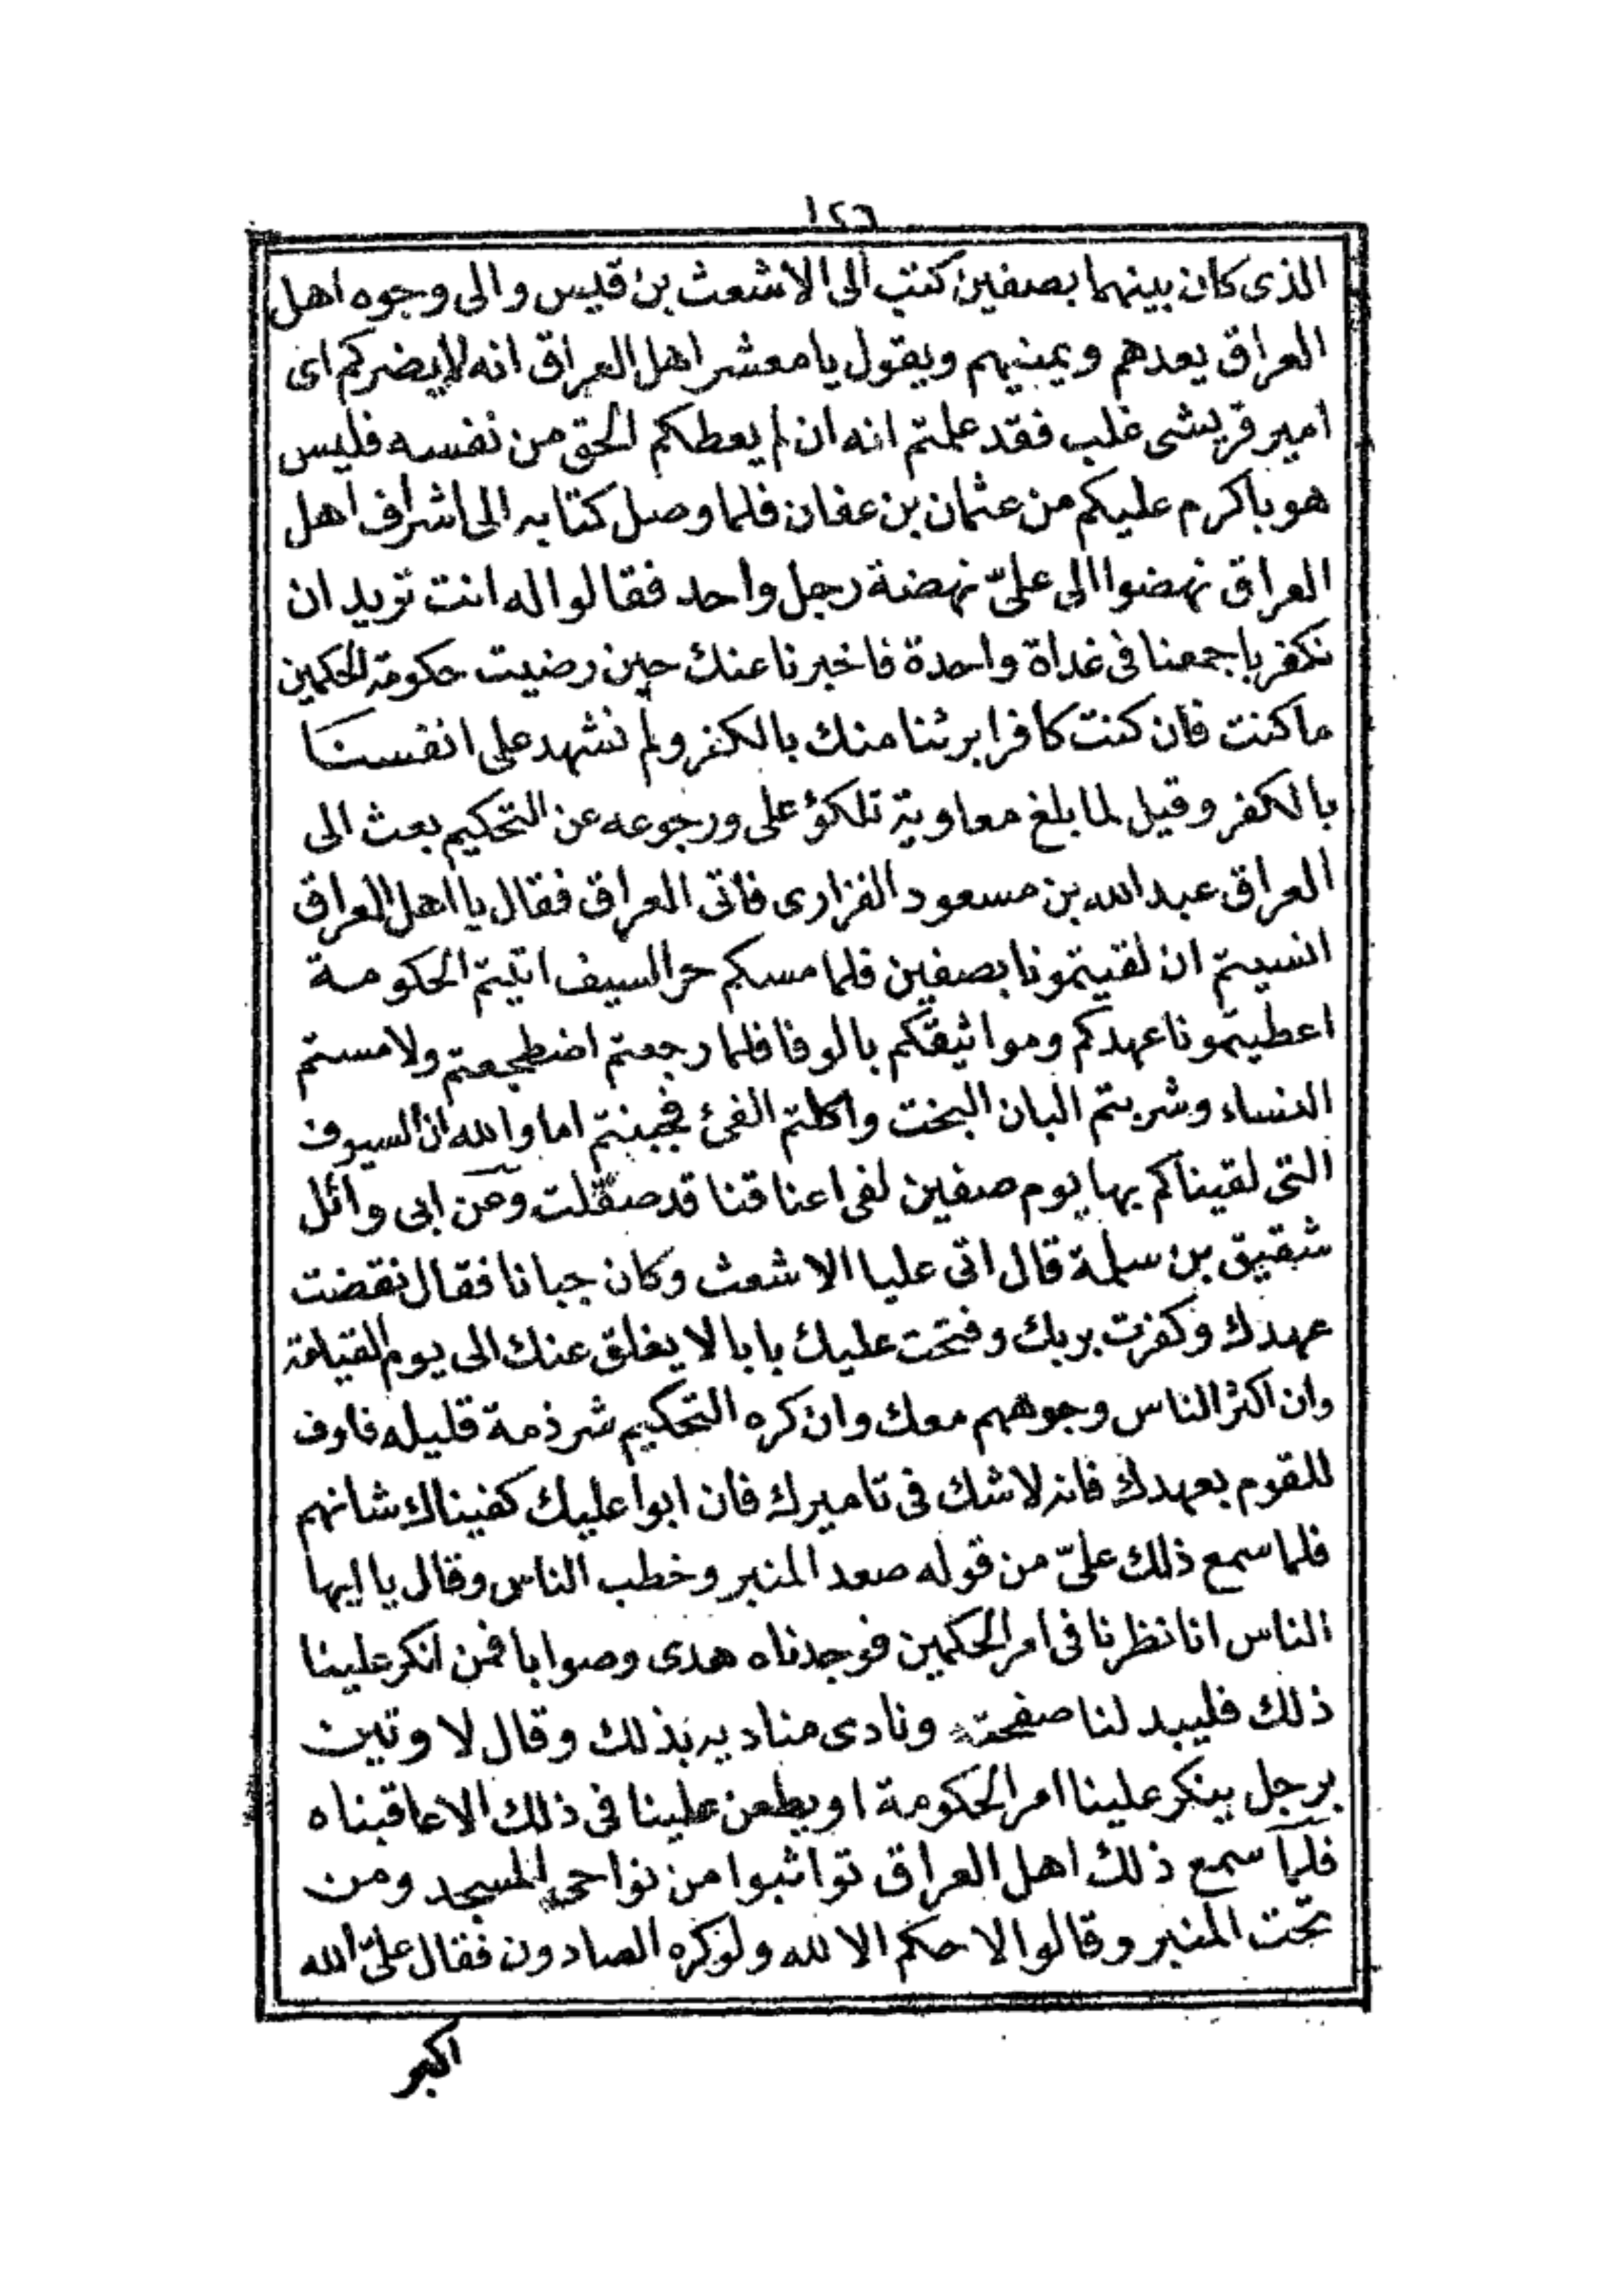 ١٢٦
الذى كان بينهما بصفين كتب الى الاشعث بن قيس والى وجوه اهل
العراق يعدهم ويمنيهم ويقول يا معشر اهل العراق انه لا يضركم اى
امير قريشى غلب فقد علمتم انه ان لم يعطكم الحق من نفسه فليس
هو باكرم عليكم من عثمان بن عفان فلما وصل كتابه الى اشراف اهل
العراق نهضوا الى علىّ نهضة رجل واحد فقالوا له انت تريد ان
نكفر باجمعنا فى غداة واحدة فاخبرنا عنك حين رضيت حكومة الحكمين
ما كنت فان كنت كافرا برئنا منك بالكفر ولم نشهد على انفسنا
بالكفر وقيل لما بلغ معاوية تلكؤ على ورجوعه عن التحكيم بعث الى
العراق عبد الله بن مسعود الفزارى فاتى العراق فقال يا اهل العراق
انسيتم ان لقيتمونا بصفين فلما مسكم حر السيف اتيتم الحكومة
اعطيتمونا عهدكم ومواثيقكم بالوفا فلما رجعتم اضطجعتم ولامستم
النساء وشربتم البان البخت واكلتم الفئ فجبنتم اما والله ان السيوف
التى لقيناكم بها يوم صفين لفى اعناقنا قد صقّلت وعن ابى وائل
شقيق بن سلمة قال اتى عليا الاشعث وكان جبانا فقال نقضت
عهدك وكفرت بربك وفتحت عليك بابا لا يغلق عنك الى يوم القيامة
وان اكثر الناس وجوههم معك وان كره التحكيم شرذمة قليله فاوف
للقوم بعهدك فانه لا شك فى تاميرك فان ابوا عليك كفيناك شانهم
فلما سمع ذلك علىّ من قوله صعد المنبر وخطب الناس وقال يا ايها
الناس انا نظرنا فى امر الحكمين فوجدناه هدى وصوابا فمن انكر علينا
ذلك فليبد لنا صفحته ونادى مناديه بذلك وقال لا وتين
برجل ينكر علينا امر الحكومة او يطعن علينا فى ذلك الا عاقبناه
فلما سمع ذلك اهل العراق تواثبوا من نواحى المسجد ومن
تحت المنبر وقالوا لا حكم الا لله ولو كره الصادون فقال علىّ الله
اكبر